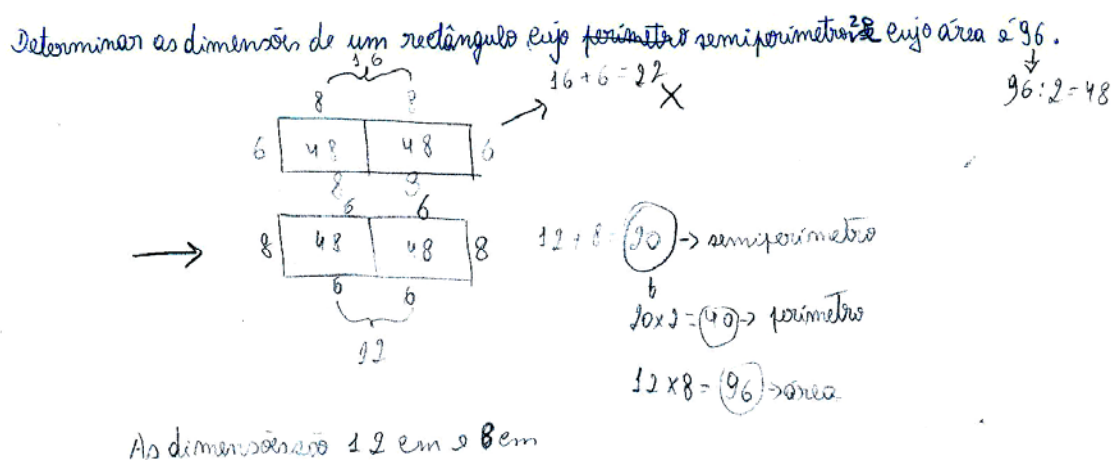 Determinar as dimensões de um rectângulo cujo perímetro semiperímetro é 20 e cujo área é 96.
96:2=48
16
16+6=22 X
8 8
6 48 48 6
8 8
6 6
8 48 48 8
6 6
12
12+8=20 -> semiperímetro
20x2=40 -> perímetro
12x8=96 -> área
As dimensões são 12 cm e 8 cm